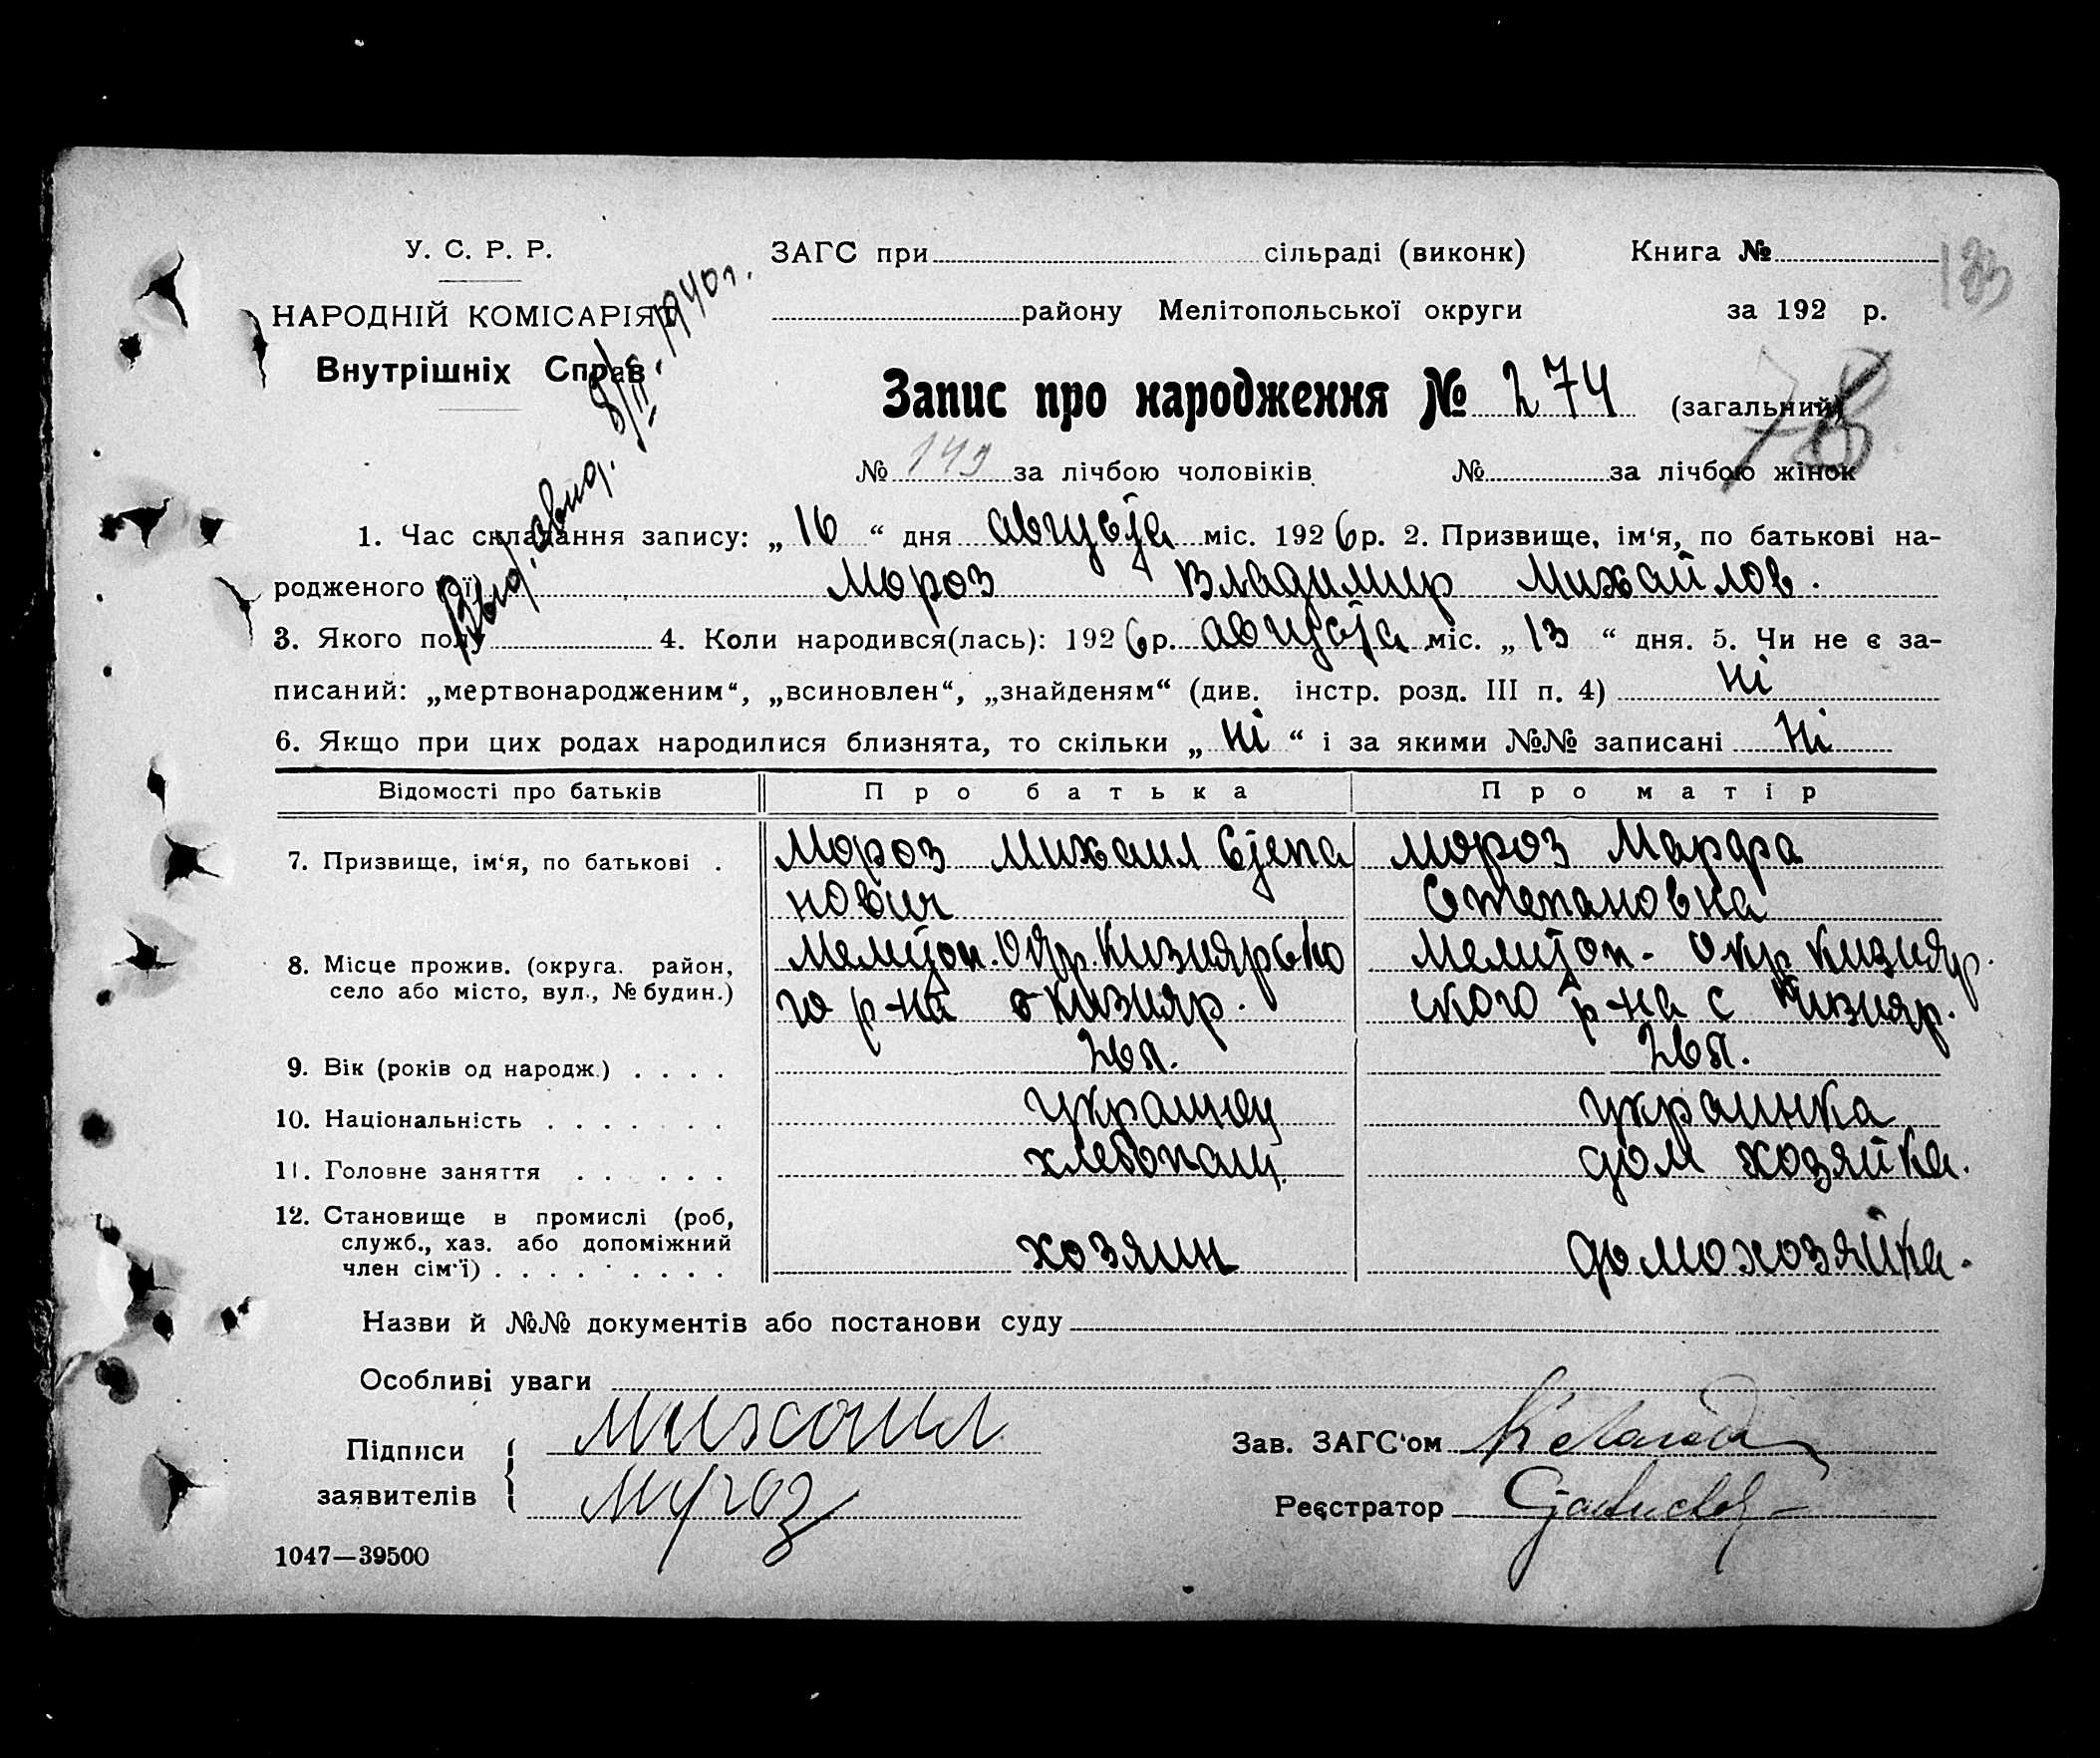 У. С. Р. Р.
НАРОДНІЙ КОМІСАРІЯТ
Внутрішніх Справ
ЗАГС при сільраді (виконк) Книга №
району Мелітопольської округи за 192 р.
Запис про народження № 274 (загальний)
78
№ 149 за лічбою чоловіків № за лічбою жінок
8/II. 1940 г.
1. Час складання запису: „ 16 “ дня августа міс. 1926 р. 2. Призвище, ім‘я, по батькові на-
родженого Мороз Владимир Михайлов.
3. Якого полу 4. Коли народився(лась): 1926 р. августа міс. „ 13 “ дня. 5. Чи не є за-
писаний: „мертвонародженим“, „всиновлен“, „знайденям“ (див. інстр. розд. III п. 4) Ні
6. Якщо при цих родах народилися близнята, то скільки „ Ні “ і за якими №№ записані Ні
Відомості про батьків Про батька Про матір
7. Призвище, ім‘я, по батькові . Мороз Михаил Степа Мороз Марфа
нович Степановна
8. Місце прожив. (округа. район, Мелитоп. Окр. Кизиярско Мелитоп. Окр Кизияр.
село або місто, вул., № будин.) го р-на с Кизияр. ского р-на с Кизияр.
9. Вік (років од народж.) . . . . 26 л. 26 л.
10. Національність . . . . . . . украинец украинка
11. Головне заняття . . . . . . хлебопащ. дом хозяйка.
12. Становище в промислі (роб,
служб., хаз. або допоміжний
член сім‘ї) . . . . . . . . . хозяин домохозяйка.
Назви й №№ документів або постанови суду
Особливі уваги
Підписи Михаил Зав. ЗАГС‘ом
заявителів Мороз Реєстратор
1047—39500